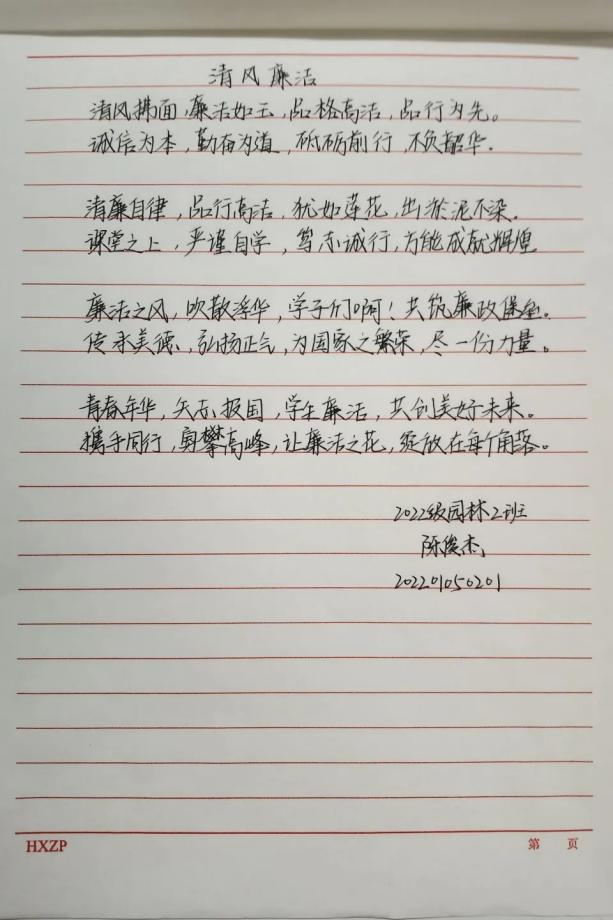 清风廉洁
清风拂面，廉洁如玉，品格高洁，品行为先。
诚信为本，勤奋为道，砥砺前行，不负韶华。
清廉自律，品行高洁，犹如莲花，出淤泥不染。
课堂之上，严谨自学，笃志诚行，方能成就辉煌
廉洁之风，吹散浮华，学子们啊！共筑廉政堡垒。
传承美德，弘扬正气，为国家之繁荣，尽一份力量。
青春年华，矢志报国，学生廉洁，共创美好未来。
携手同行，勇攀高峰，让廉洁之花，绽放在每个角落。
2022级园林2班
陈俊杰
202201050201
HXZP 第 页